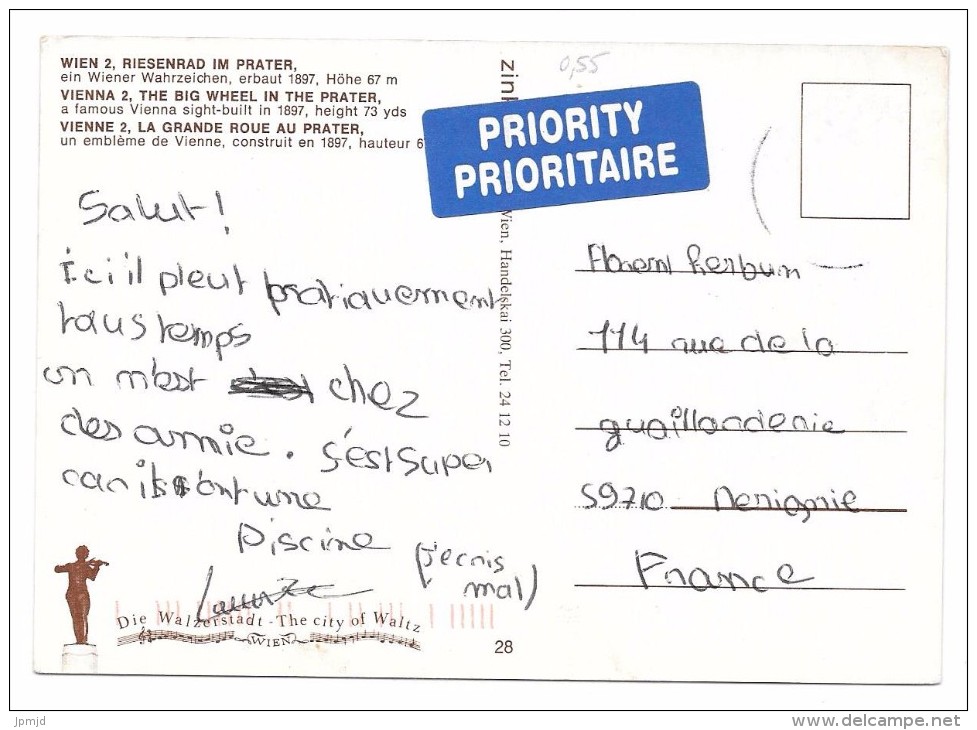 WIEN 2, RIESENRAD IM PRATER,
ein Wiener Wahrzeichen, erbaut 1897, Höhe 67 m
VIENNA 2, THE BIG WHEEL IN THE PRATER,
a famous Vienna sight-built in 1897, height 73 yds
VIENNE 2, LA GRANDE ROUE AU PRATER,
un emblème de Vienne, construit en 1897, hauteur 6
0,55
PRIORITY
PRIORITAIRE
Wien, Handelskai 300, Tel. 24 12 10
Salut!
Ici il pleut pratiquement
tous temps
on n'est chez
des amie. s'est super
car ils ont une
Piscine
(j'ecris
mal)
114 rue de la
59710
France
Die Walzerstadt - The city of Waltz
WIEN
28
jpmjd
www.delcampe.net